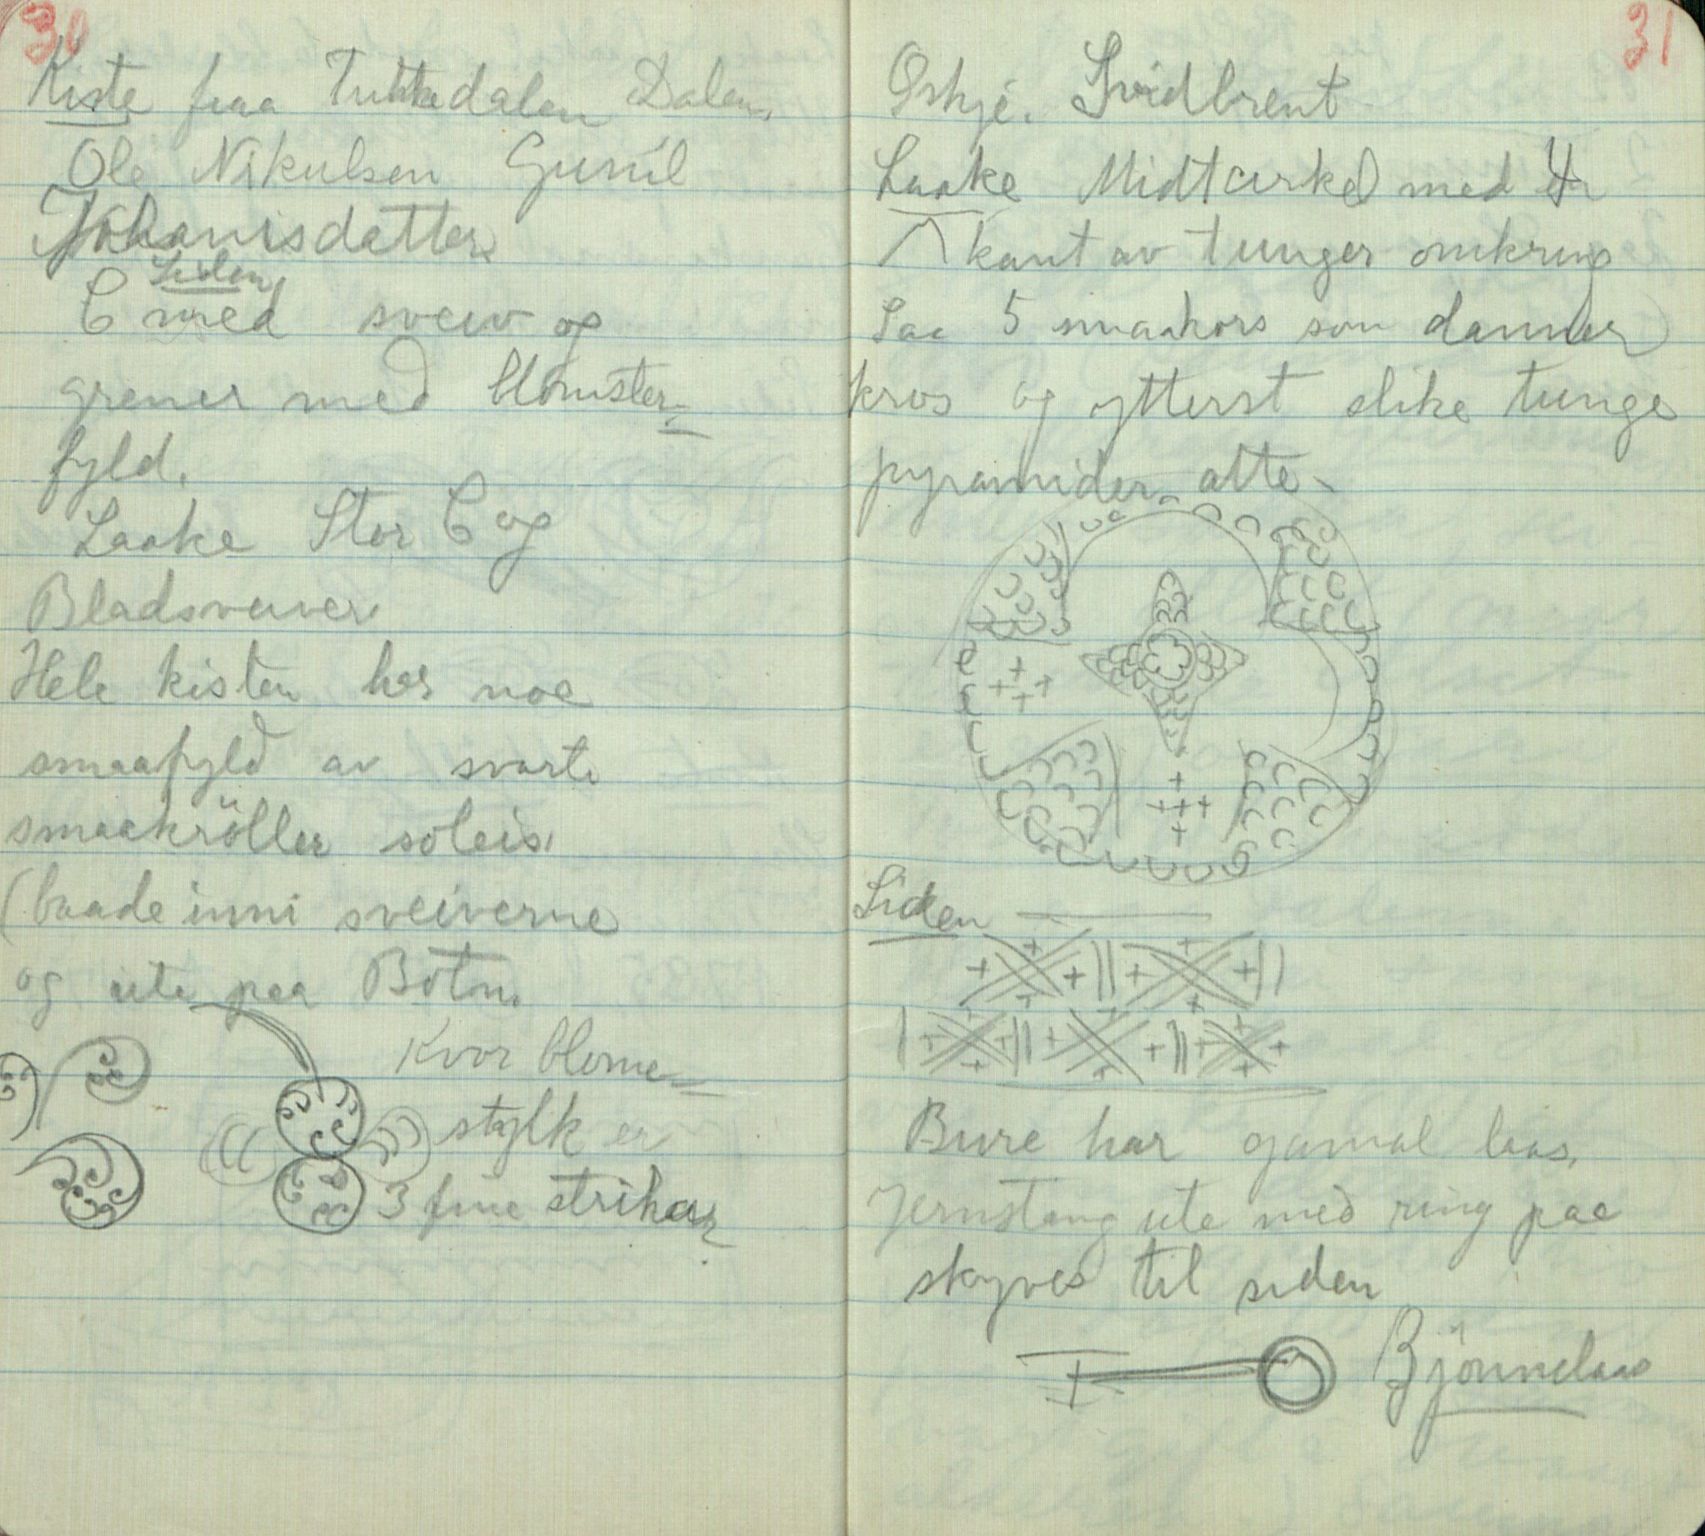 30
Kiste fraa Tukkedalen Dalen.
Ole Nikulsen Gunil
Johanisdatter
Siden
C med sveiv og
grener med blomster-
fyld.
Laake Stor C og
Bladsveiver
Hele kisten har noe
smaafyld av svarte
smaakröller soleis
(baade inni sveiverne
og ute paa Botn.
Kvor blome-
stylk er
3 fine strikar
31
Oskje. Svidbrent
Laake Midtcirkel med 4
kant av tunger omkring
Saa 5 smaakors som danner
kros og ytterst slike tunge
pyramider atte
Siden
Bure har gamal laas.
Jernstang ute med ring paa
skyves til siden
Bjönnelaas